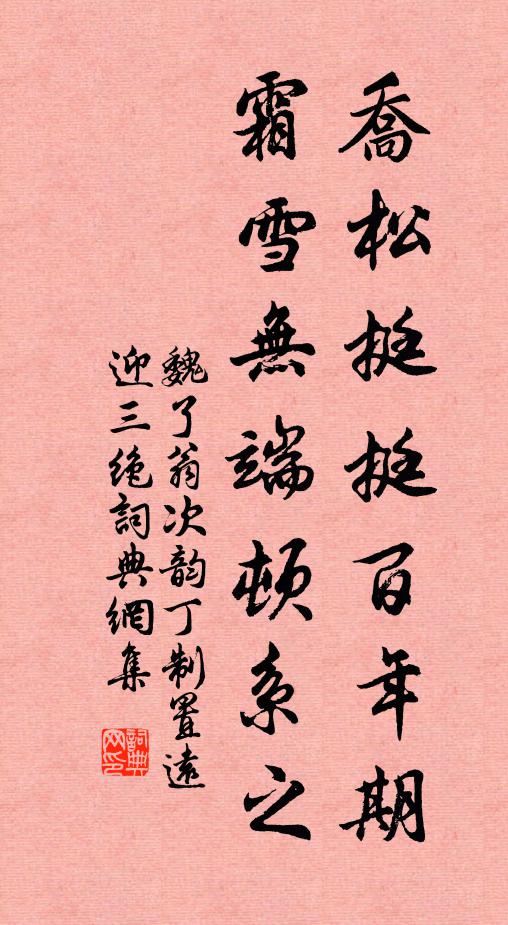 喬松挺挺百年期
霜雪無端頓系之
魏了翁次韵丁制置遠
迎三绝詞典網集
詞典网印